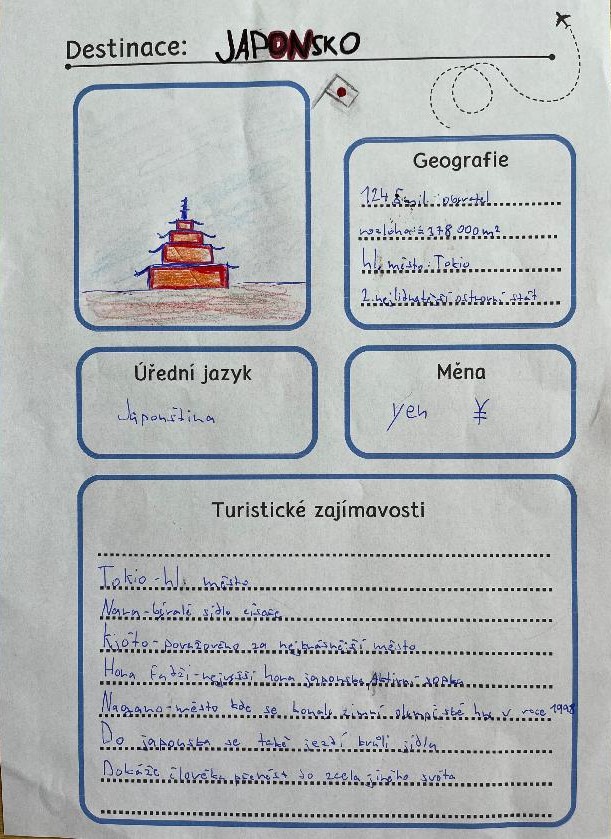 Destinace: JAPONSKO
Geografie
124 mil. obyvatel
rozloha = 378 000 m²
hl. město: Tokio
2. nejlidnatější ostrovní stát
Úřední jazyk
Japonština
Měna
yen ¥
Turistické zajímavosti
Tokio - hl. město
Nara - bývalé sídlo císaře
Kjóto - považováno za nejkrásnější město
Hora Fudži - nejvyšší hora japonska, Aktivní sopka
Nagano - město kde se konaly zimní olympijské hry v roce 1998
Do japonska se také jezdí kvůli jídlu
Dokáže člověka přenést do zcela jiného světa